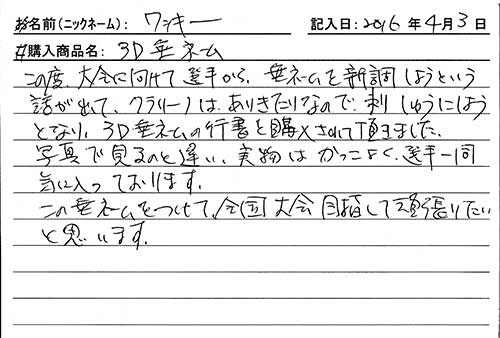 お名前(ニックネーム): ワッキー 記入日: 2016 年 4 月 3 日
#購入商品名: 3D垂ネーム
この度、大会に向けて選手から、垂ネームを新調しようという
話が出て、クラリーノは、ありきたりなので、刺しゅうにしよう
となり、3D垂ネームの行書を購入させて頂きました。
写真で見るのと違い、実物はかっこよく、選手一同
気に入っております。
この垂ネームをつけて、全国大会目指して頑張りたい
と思います。